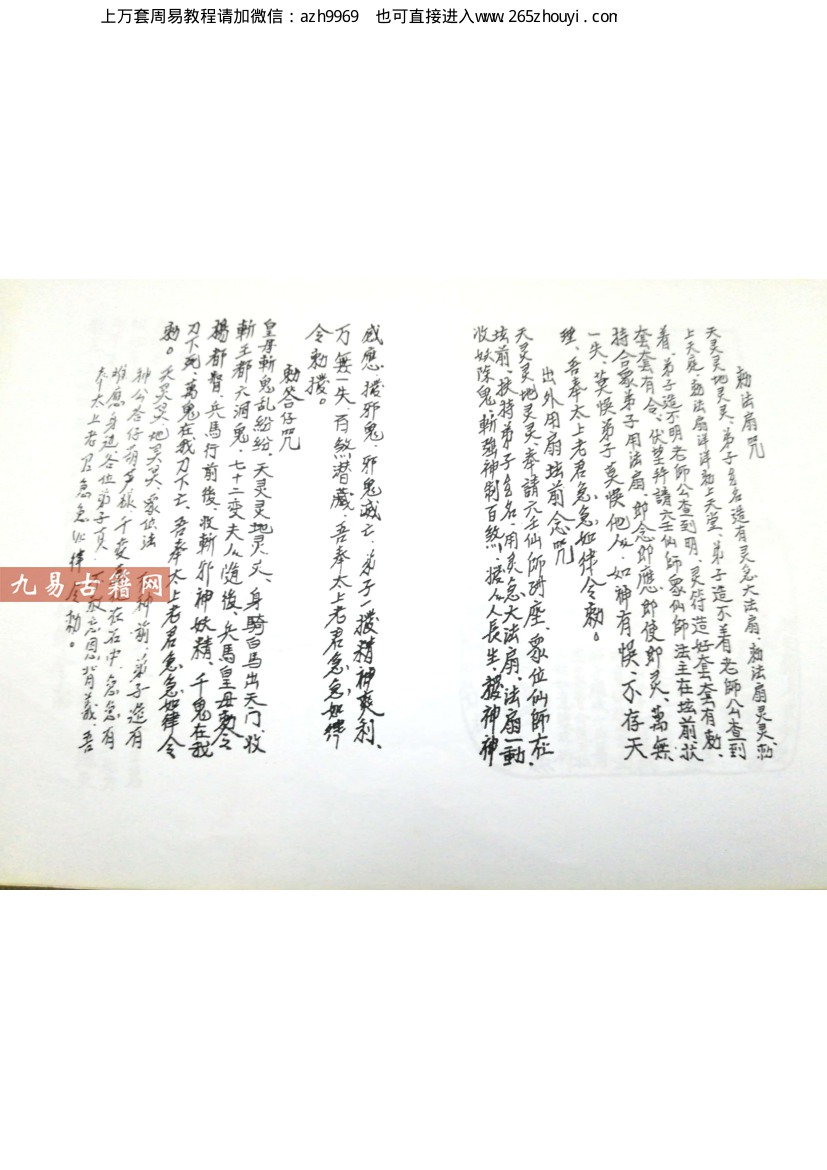 上万套周易教程请加微信：azh9969　也可直接进入www.265zhouyi.com
勅法扇咒
天灵灵地灵灵、弟子△名造有灵急大法扇、勅法扇灵灵勅
上天庭、勅法扇洋洋勅上天堂、弟子造不着老師公查到
着、弟子造不明老師公查到明、灵符造好套套有勅、
套套有令、伏望拜請六壬仙師眾仙師法主在坛前扶
持合家弟子用法扇、即念即應、即使即灵、萬無
一失、莫悮弟子莫悮他人、如神有悮、不存天
理、吾奉太上老君急急如律令勅。
出外用扇坛前念咒
天灵灵地灵灵、奉請六壬仙師 座、眾位仙師在
坛前、扶持弟子△名、用灵急大法扇、法扇一動、
收妖除鬼、斬 神制百煞、 人長生、撥神神
感應、撥邪鬼、邪鬼滅亡、弟子一撥精神爽利、
万無一失、百煞潜藏、吾奉太上老君急急如律
令勅撥。
勅答仔咒
皇母斬鬼乱紛紛、天灵灵地灵灵、身騎白馬出天門、收
斬王都大洞鬼、七十二变夫人随後、兵馬皇母勅令
楊都督、兵馬行前後、收斬邪神妖精、千鬼在我
刀下死、萬鬼在我刀下亡、吾奉太上老君急急如律令
勅。天灵灵地灵灵、眾位法 神前、弟子造有
神公答仔葫芦樣、千变 在 中、急急有
难應身边各位弟子 、 敢忘恩背義、吾
奉太上老君急急如律令勅。
九易古籍网